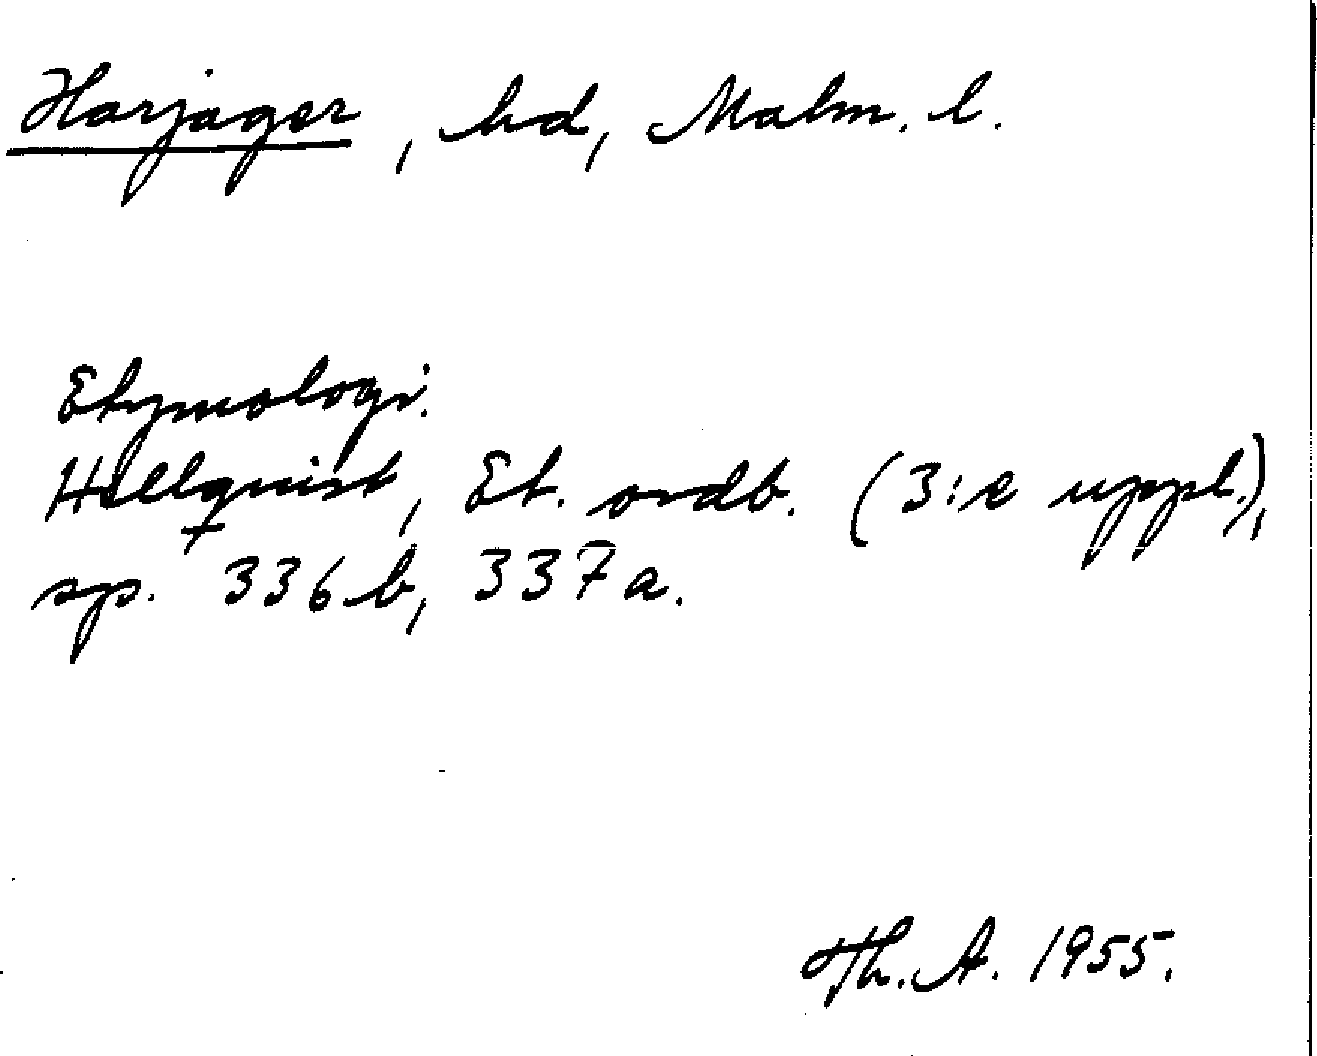 Harjager, hd, Malm. l.
Etymologi.
Hellquist, Et. ordb. (3:e uppl.),
sp. 336 b, 337 a.
Th. A. 1955.